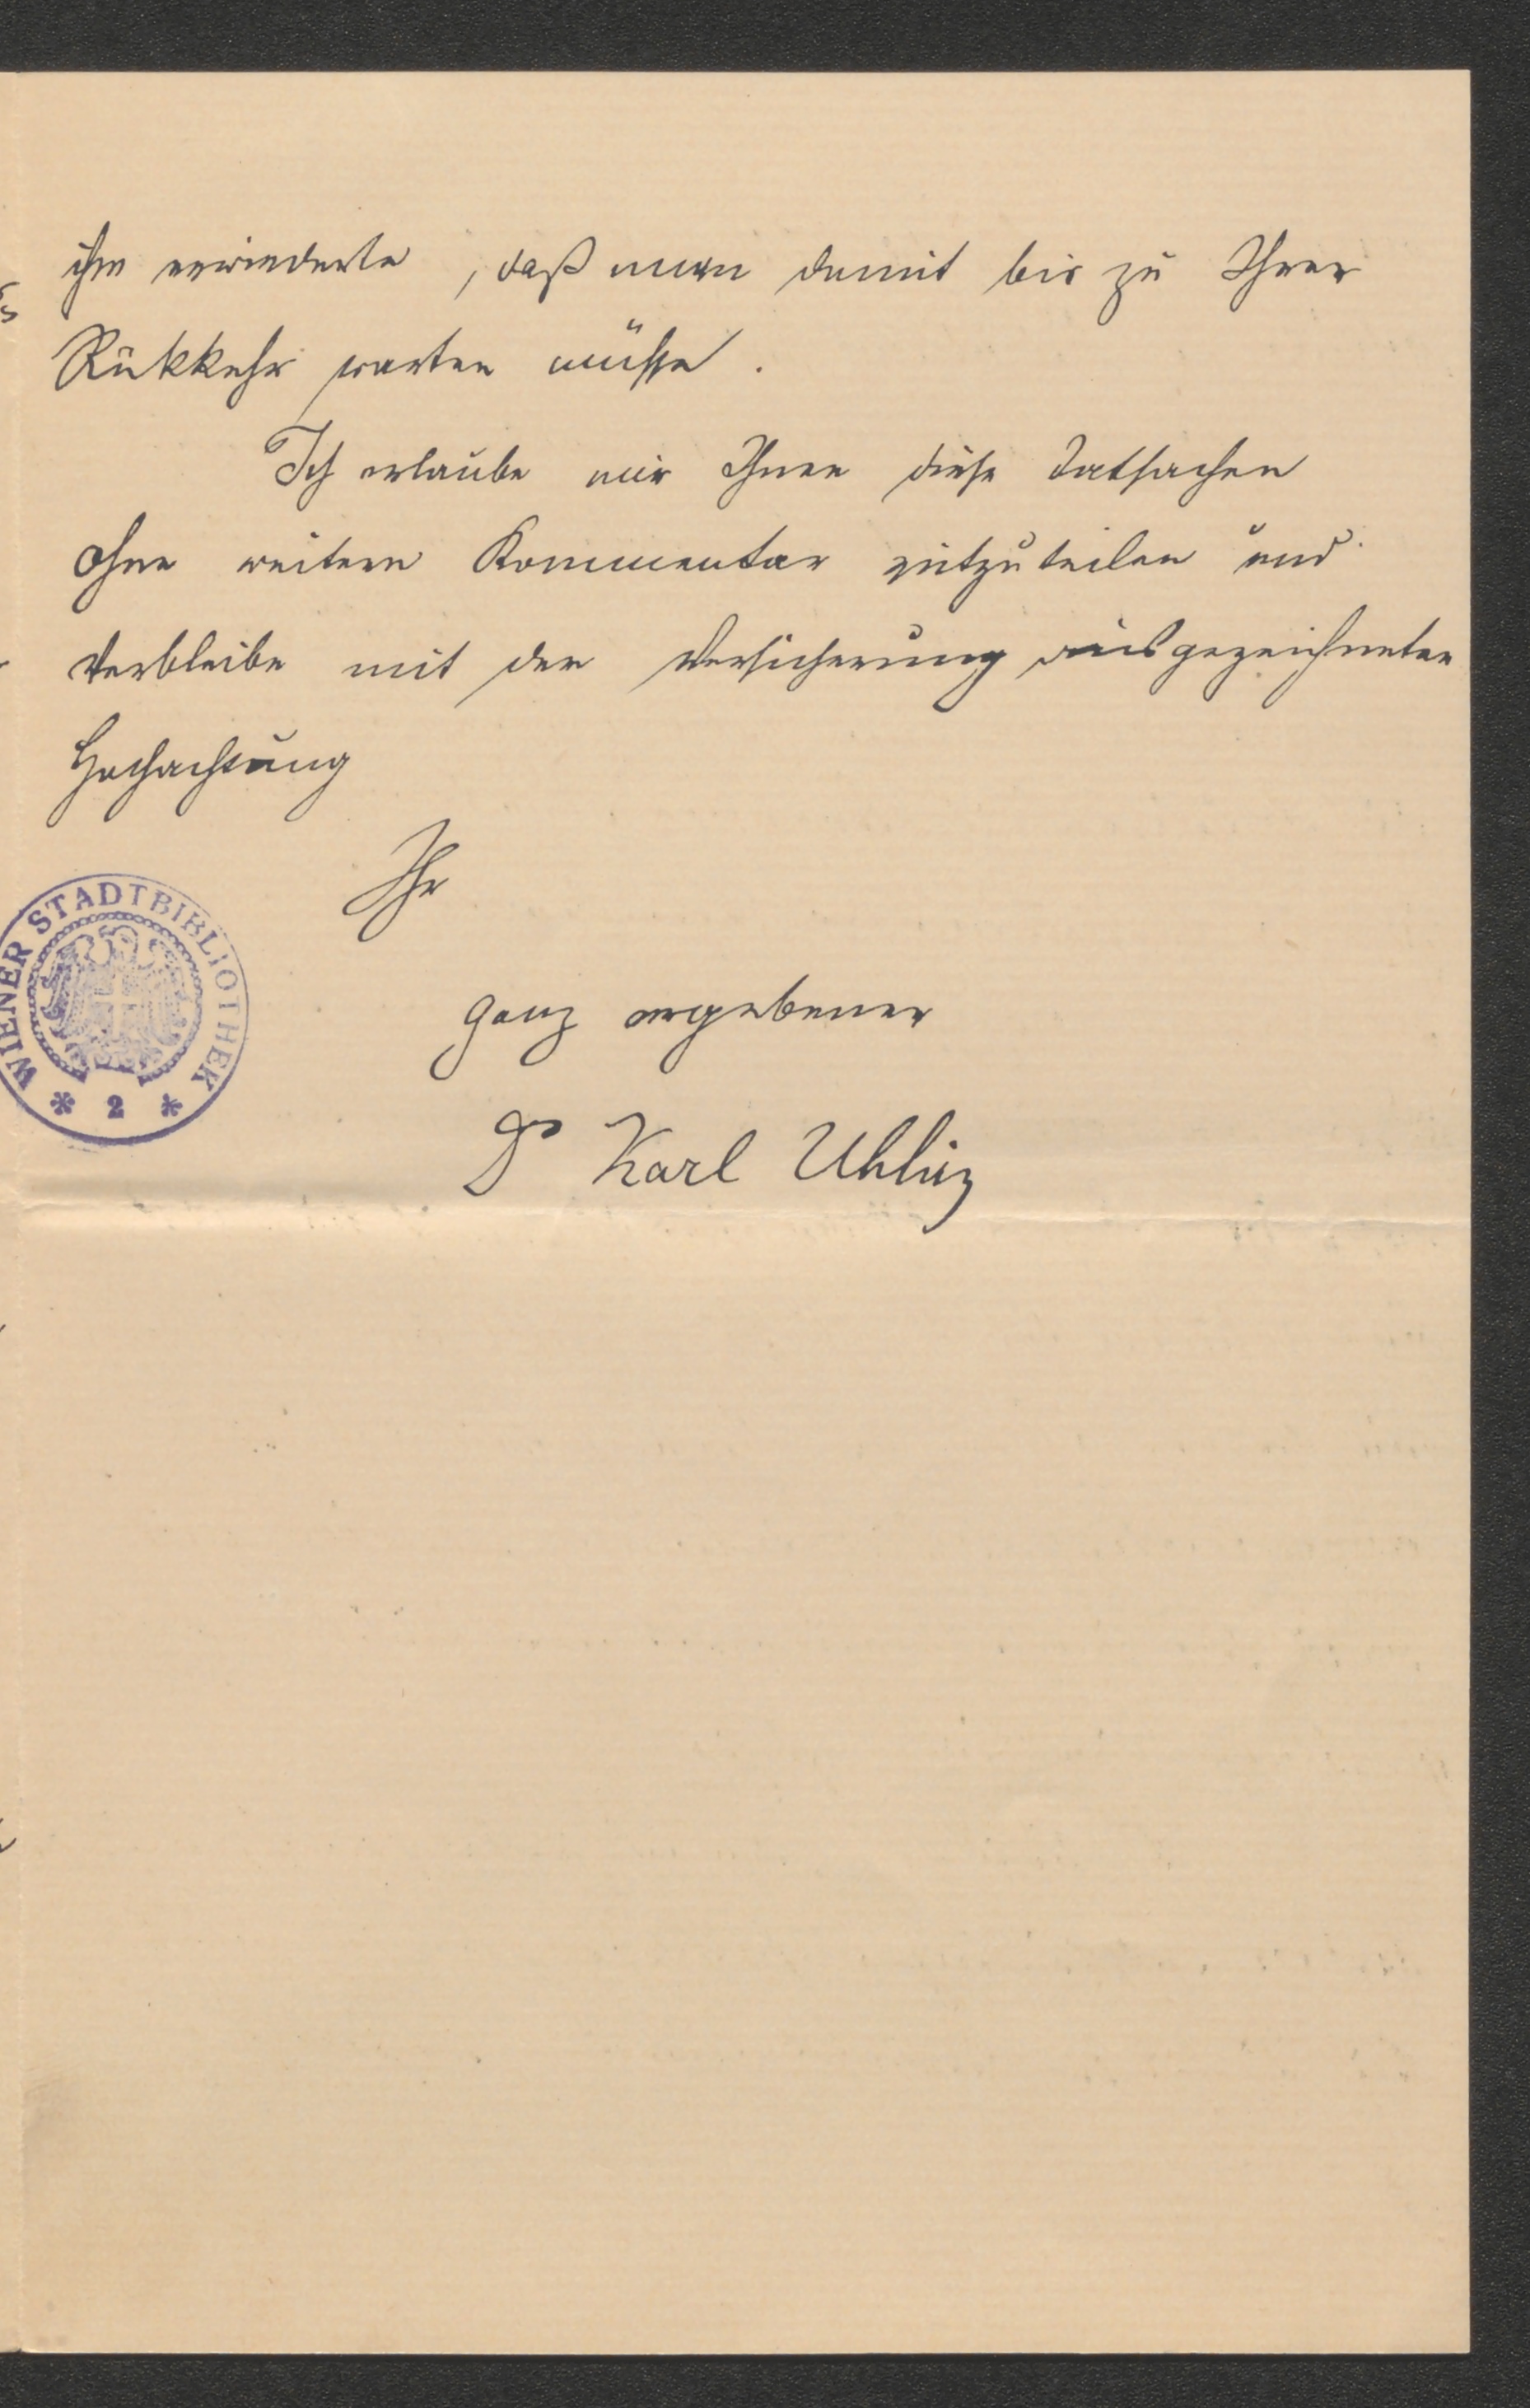 ihm erwiederte, daß man damit bis zu Ihrer
Rükkehr warten müsse.
Ich erlaube mir Ihnen diese Tatsachen
ohne weitern Kommentar mitzuteilen und
verbleibe mit der Versicherung ausgezeichneter
Hochachtung
Ihr
WIENER STADTBIBLIOTHEK
* 2 *
ganz ergebener
Dr Karl Uhlirz